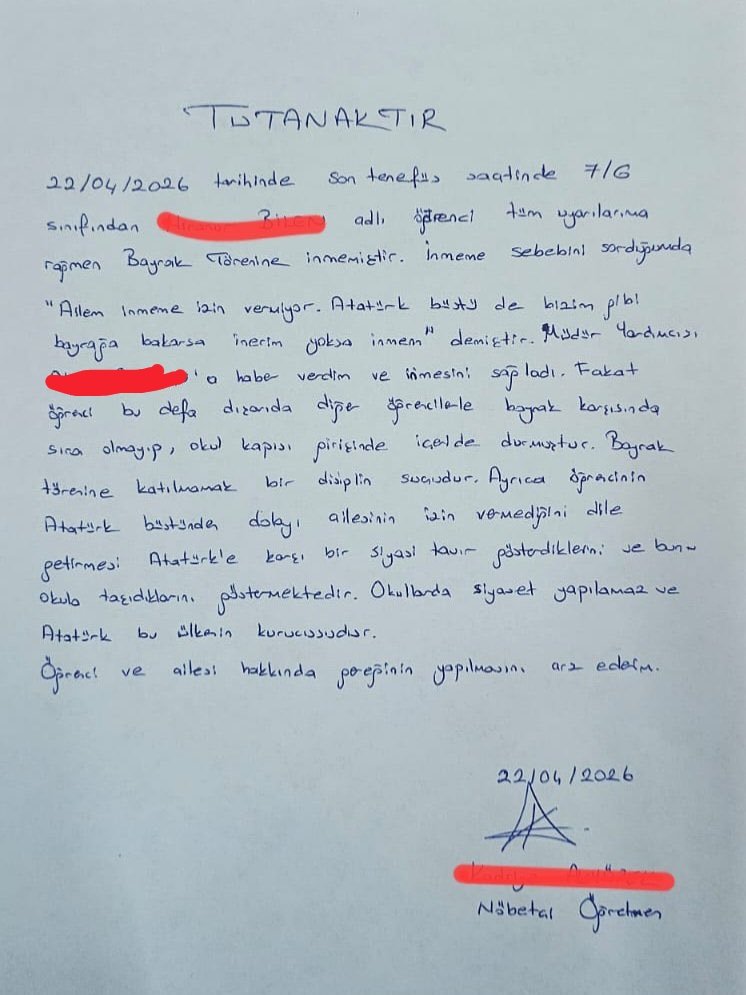 TUTANAKTIR
22/04/2026 tarihinde son tenefüs saatinde 7/G
sınıfından adlı öğrenci tüm uyarılarıma
rağmen Bayrak Törenine inmemiştir. İnmeme sebebini sorduğumda
"Ailem inmeme izin vermiyor. Atatürk büstü de bizim gibi
bayrağa bakarsa inerim yoksa inmem" demiştir. Müdür Yardımcısı
'a haber verdim ve inmesini sağladı. Fakat
öğrenci bu defa dışarıda diğer öğrencilerle bayrak karşısında
sıra olmayıp, okul kapısı girişinde içerde durmuştur. Bayrak
törenine katılmamak bir disiplin suçudur. Ayrıca öğrencinin
Atatürk büstünden dolayı ailesinin izin vermediğini dile
getirmesi Atatürk'e karşı bir siyasi tavır gösterdiklerini ve bunu
okula taşıdıklarını göstermektedir. Okullarda siyaset yapılamaz ve
Atatürk bu ülkenin kurucusudur.
Öğrenci ve ailesi hakkında gereğinin yapılmasını arz ederim.
22/04/2026
Nöbetçi Öğretmen